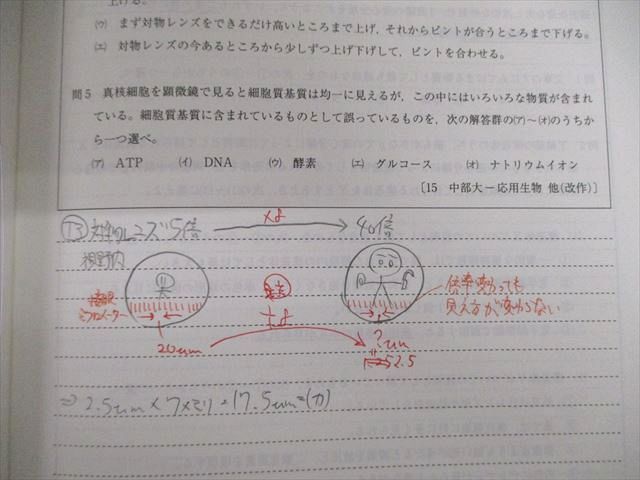 上げる。
(ウ) まず対物レンズをできるだけ高いところまで上げ、それからピントが合うところまで下げる。
(エ) 対物レンズの今あるところから少しずつ上げ下げして、ピントを合わせる。
問5 真核細胞を顕微鏡で見ると細胞質基質は均一に見えるが、この中にはいろいろな物質が含まれ
ている。細胞質基質に含まれているものとして誤っているものを、次の解答群の(ア)～(オ)のうちか
ら一つ選べ。
(ア) ATP (イ) DNA (ウ) 酵素 (エ) グルコース (オ) ナトリウムイオン
〔15 中部大－応用生物 他(改作)〕
問3 対物レンズ5倍 ×8 40倍
視野内
接眼ミクロメーター
注
倍率変わっても
見え方が変わらない
÷8
20um
?um
2.5
⇒ 2.5um×7メモリ=17.5um=(カ)